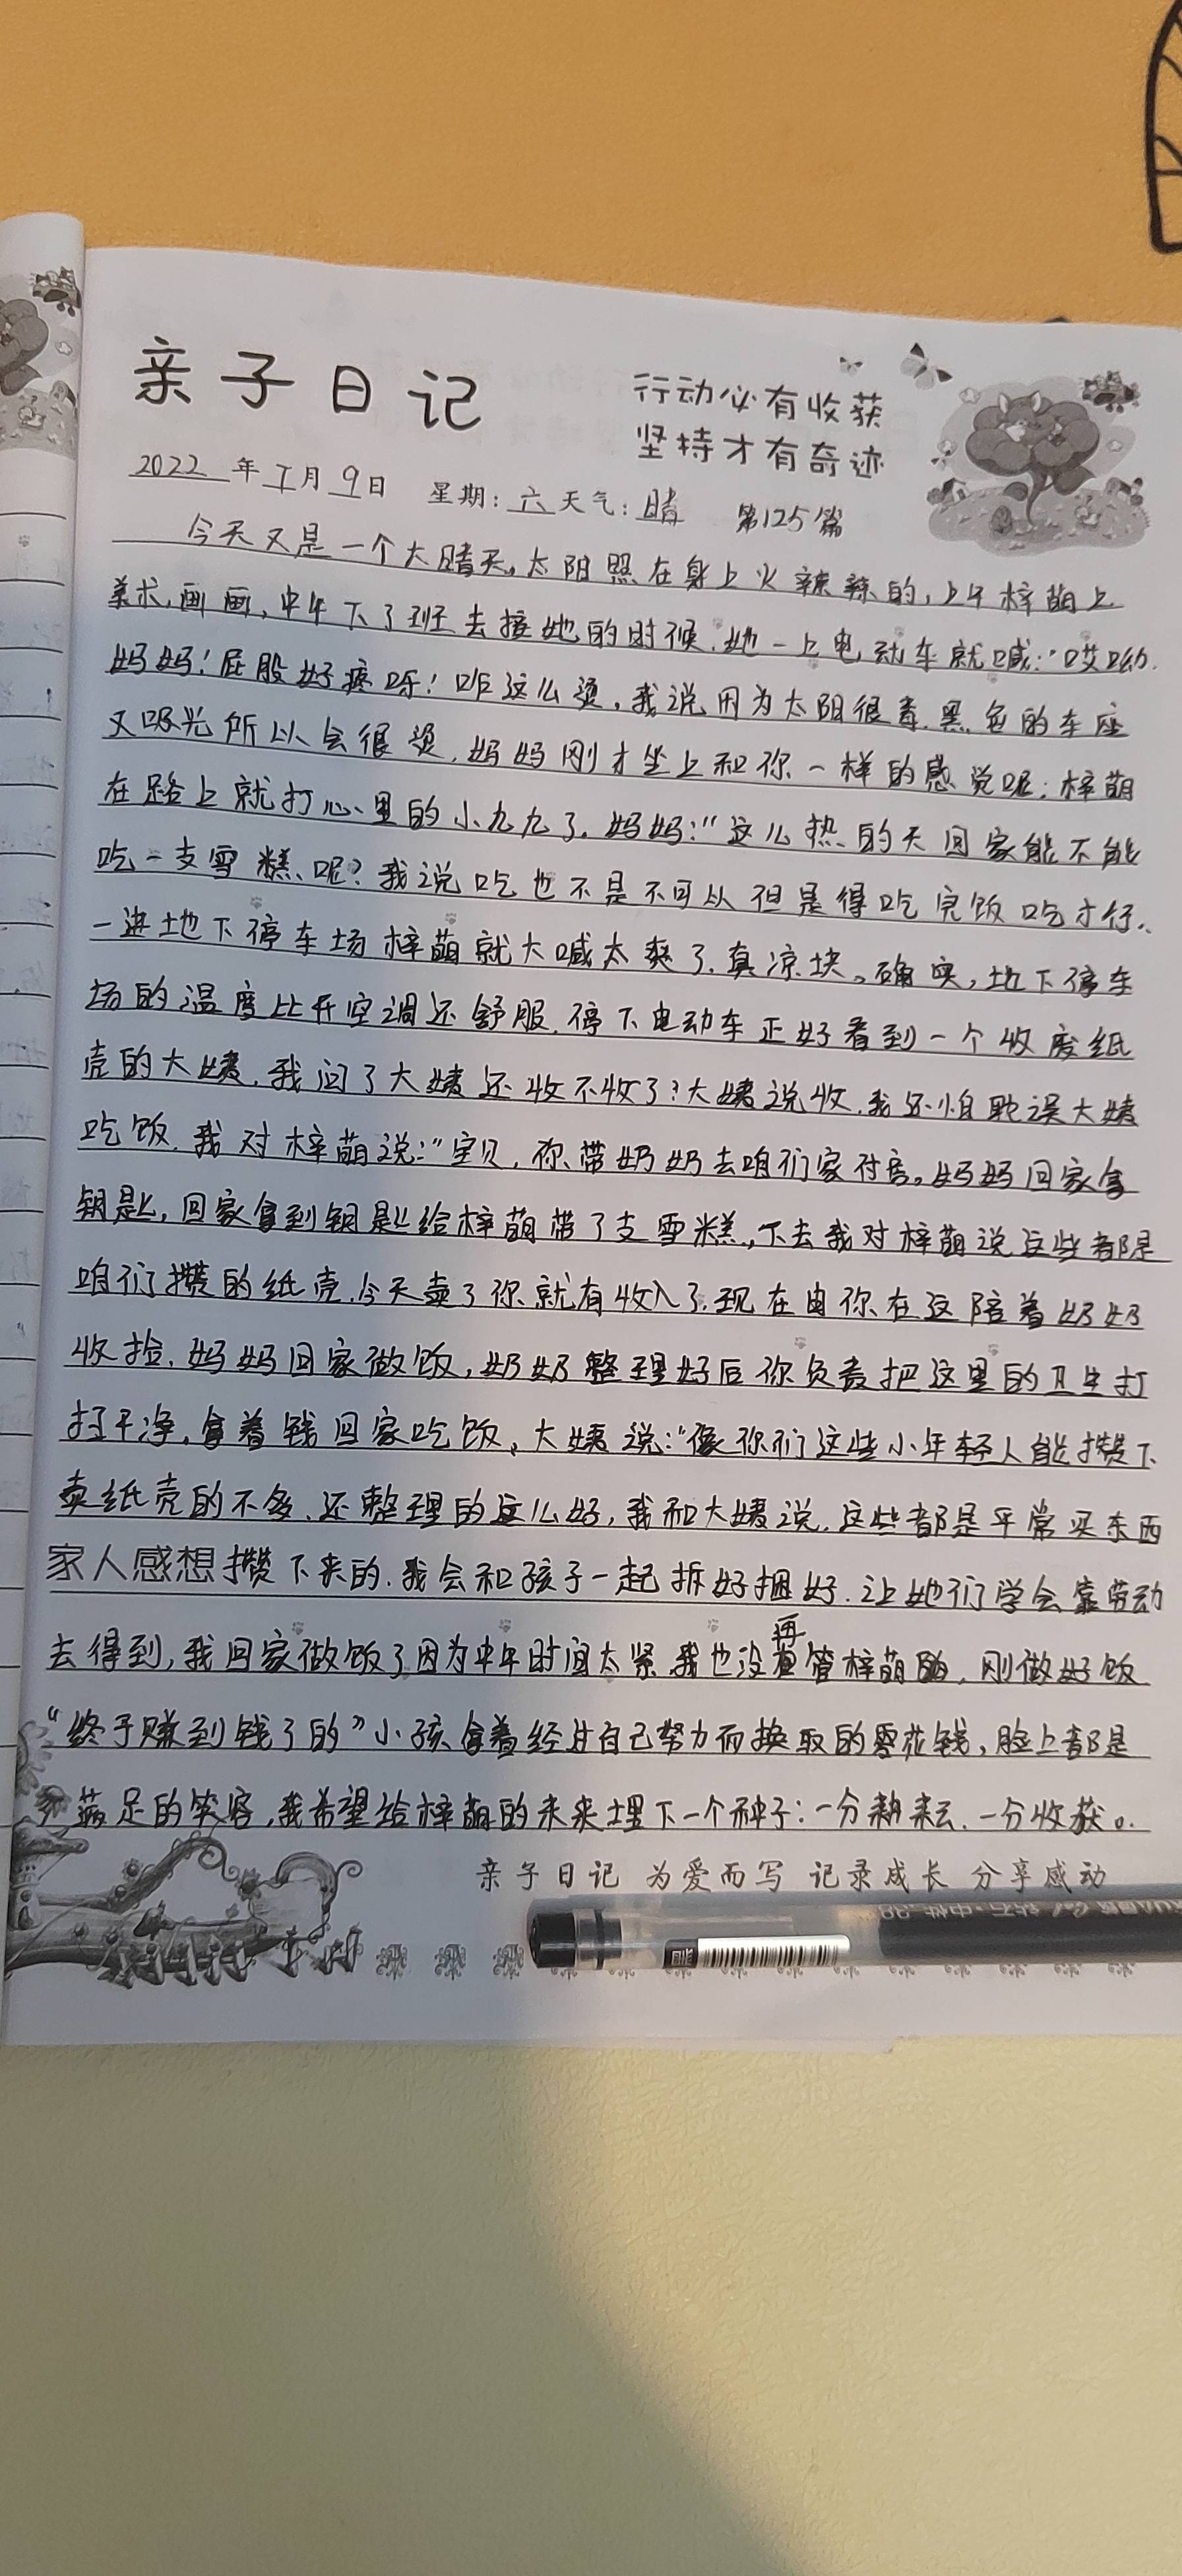 亲子日记
行动必有收获
坚持才有奇迹
2022年7月9日 星期:六 天气:晴 第125篇
今天又是一个大晴天。太阳照在身上火辣辣的,上午梓萌上
美术,画画,中午下了班去接她的时候.她一上电动车就喊:“哎呦.
妈妈!屁股好疼呀!咋这么烫,我说因为太阳很毒.黑色的车座
又吸光所以会很烫,妈妈刚才坐上和你一样的感觉呢;梓萌
在路上就打心里的小九九了.妈妈:“这么热的天回家能不能
吃一支雪糕呢?我说吃也不是不可以但是得吃完饭吃才行、
一进地下停车场梓萌就大喊太爽了.真凉块。确实,地下停车
场的温度比开空调还舒服.停下电动车正好看到一个收废纸
壳的大姨.我问了大姨还收不收了?大姨说收.我还怕耽误大姨
吃饭.我对梓萌说:“宝贝,你带奶奶去咱们家付房。妈妈回家拿
钥匙,回家拿到钥匙给梓萌带了支雪糕,下去我对梓萌说这些都是
咱们攒的纸壳.今天卖了你就有收入了.现在由你在这陪着奶奶
收捡.妈妈回家做饭,奶奶整理好后你负责把这里的卫生打
扫干净,拿着钱回家吃饭。大姨说:“像你们这些小年轻人能攒下
卖纸壳的不多.还整理的这么好,我和大姨说.这些都是平常买东西
家人感想 攒下来的.我会和孩子一起拆好捆好.让她们学会靠劳动
去得到,我回家做饭了因为中午时间太紧.我也没再管梓萌,刚做好饭
“终于赚到钱了的”小孩拿着经过自己努力而换取的零花钱,脸上都是
满足的笑容,我希望给梓萌的未来埋下一个种子:一分耕耘.一分收获。
亲子日记 为爱而写 记录成长 分享感动